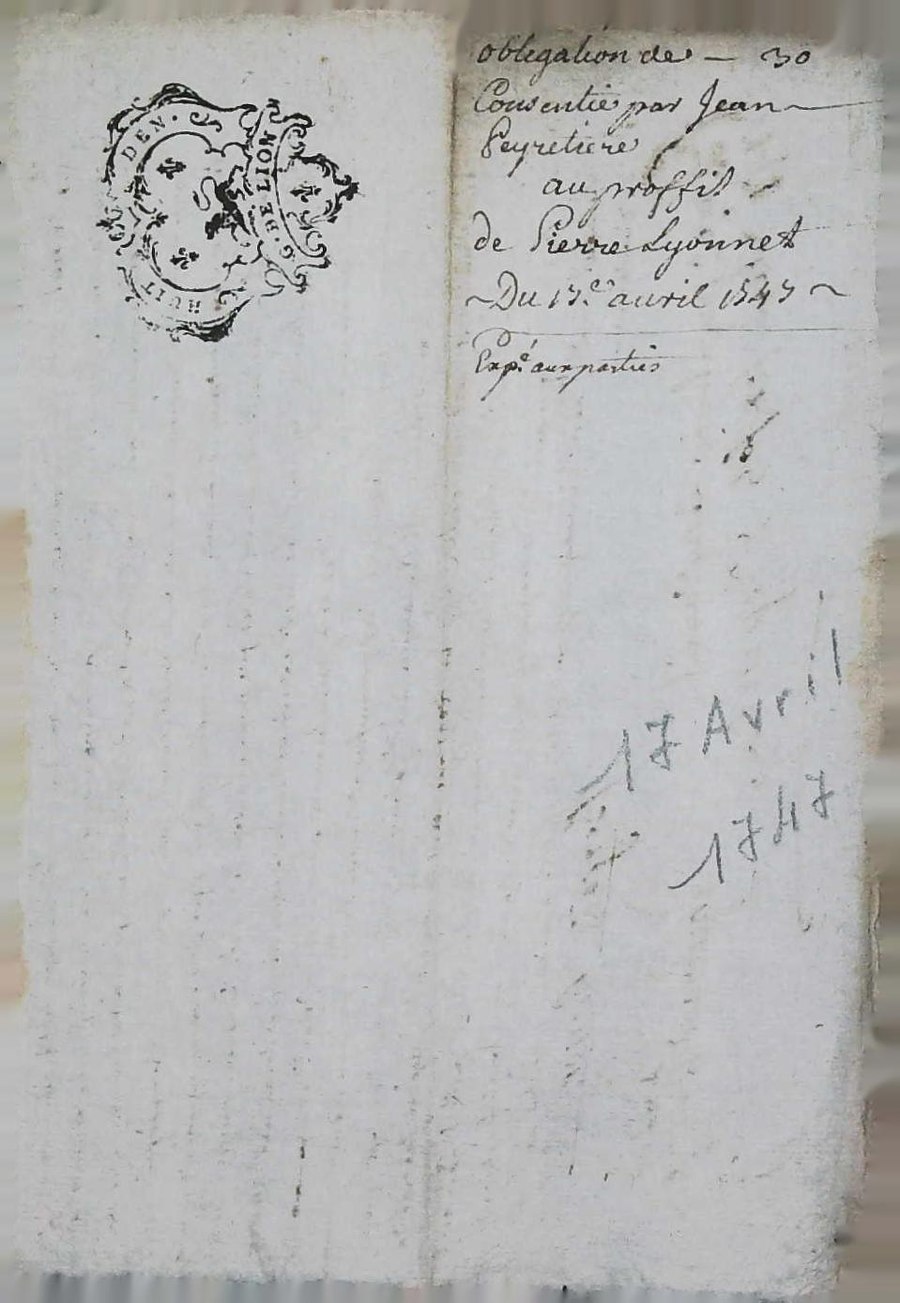 HUIT DEN.
G. DE LION
MOIT
obligation de — 30
Consentie par Jean
Peyretiere
au proffit
de Pierre Lyonnet
Du 17e avril 1747
Expé aux parties
17 Avril
1747